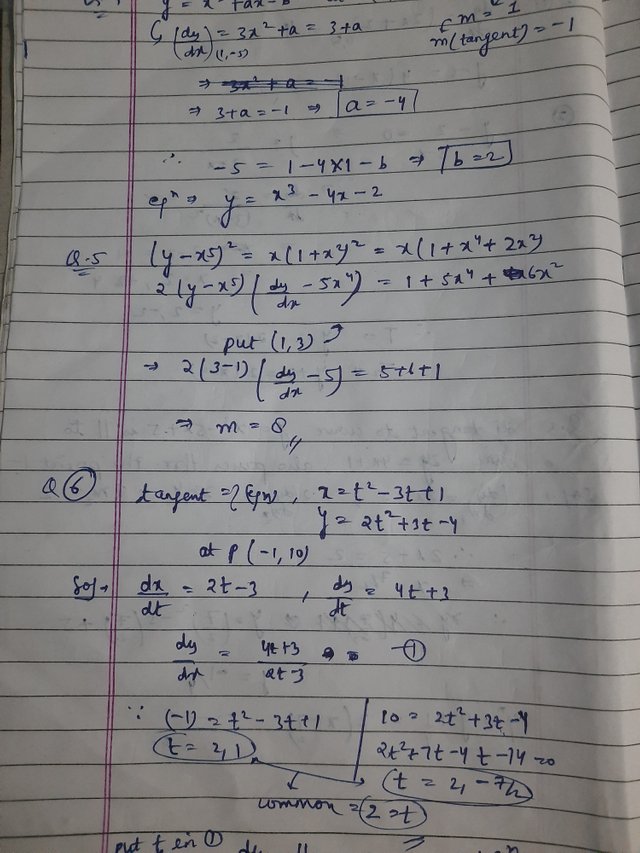 y = x³ + ax - b
↳ (dy/dx)(1,-5) = 3x² + a = 3 + a
m = 1
m(tangent) = -1
⇒ 3x² + a = -1
⇒ 3+a = -1 ⇒ a = -4
∴ -5 = 1 - 4×1 - b ⇒ b = 2
eqⁿ ⇒ y = x³ - 4x - 2
Q.5 (y - x5)² = x(1+x²)² = x(1 + x⁴ + 2x²)
2(y - x5)(dy/dx - 5x⁴) = 1 + 5x⁴ + 6x²
put (1,3)
→ 2(3-1)(dy/dx - 5) = 5+6+1
⇒ m = 8 //
Q 6 tangent = ? (eqn), x = t² - 3t + 1
y = 2t² + 3t - 4
at P (-1, 10)
Sol → dx/dt = 2t - 3 , dy/dt = 4t + 3
dy/dx = 4t+3/2t-3 - ①
∵ (-1) = t² - 3t + 1 | 10 = 2t² + 3t - 4
t = 2, 1 | 2t² + 7t - 4t - 14 = 0
t = 2, -7/2
common = 2 = t
put t in ① dy